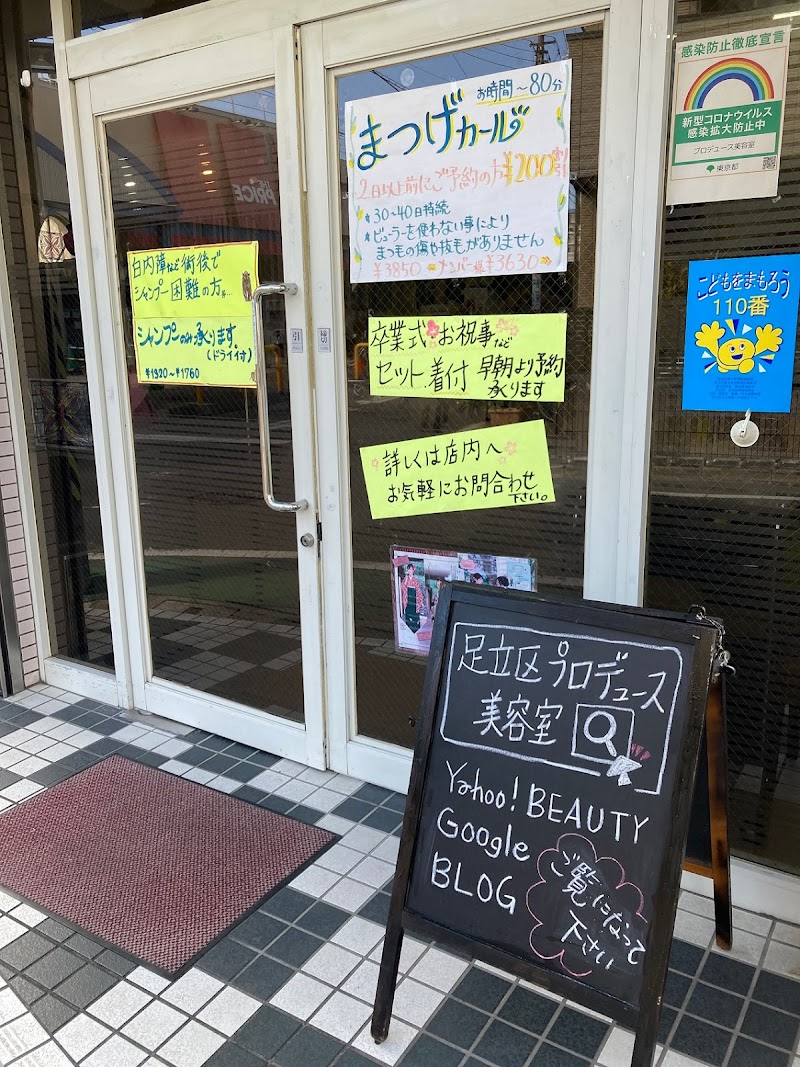 白内障など術後で
シャンプー困難の方が…
シャンプーのみ承ります
(ドライ付)
¥1320～¥1760
引
お時間～80分
まつげカール
2日以上前にご予約の方¥200割
*30～40日持続
*ビューラーを使わない事により
まつ毛の傷や抜毛がありません
¥3850 メンバー様¥3630
卒業式お祝事など
セット、着付 早朝より予約
承ります
詳しくは店内へ
お気軽にお問合わせ
下さい。
感染防止徹底宣言
新型コロナウイルス
感染拡大防止中
プロデュース美容室
東京都
こどもをまもろう
110番
PRICE
足立区プロデュース
美容室
Yahoo! BEAUTY
Google
BLOG
ご覧になって
下さい